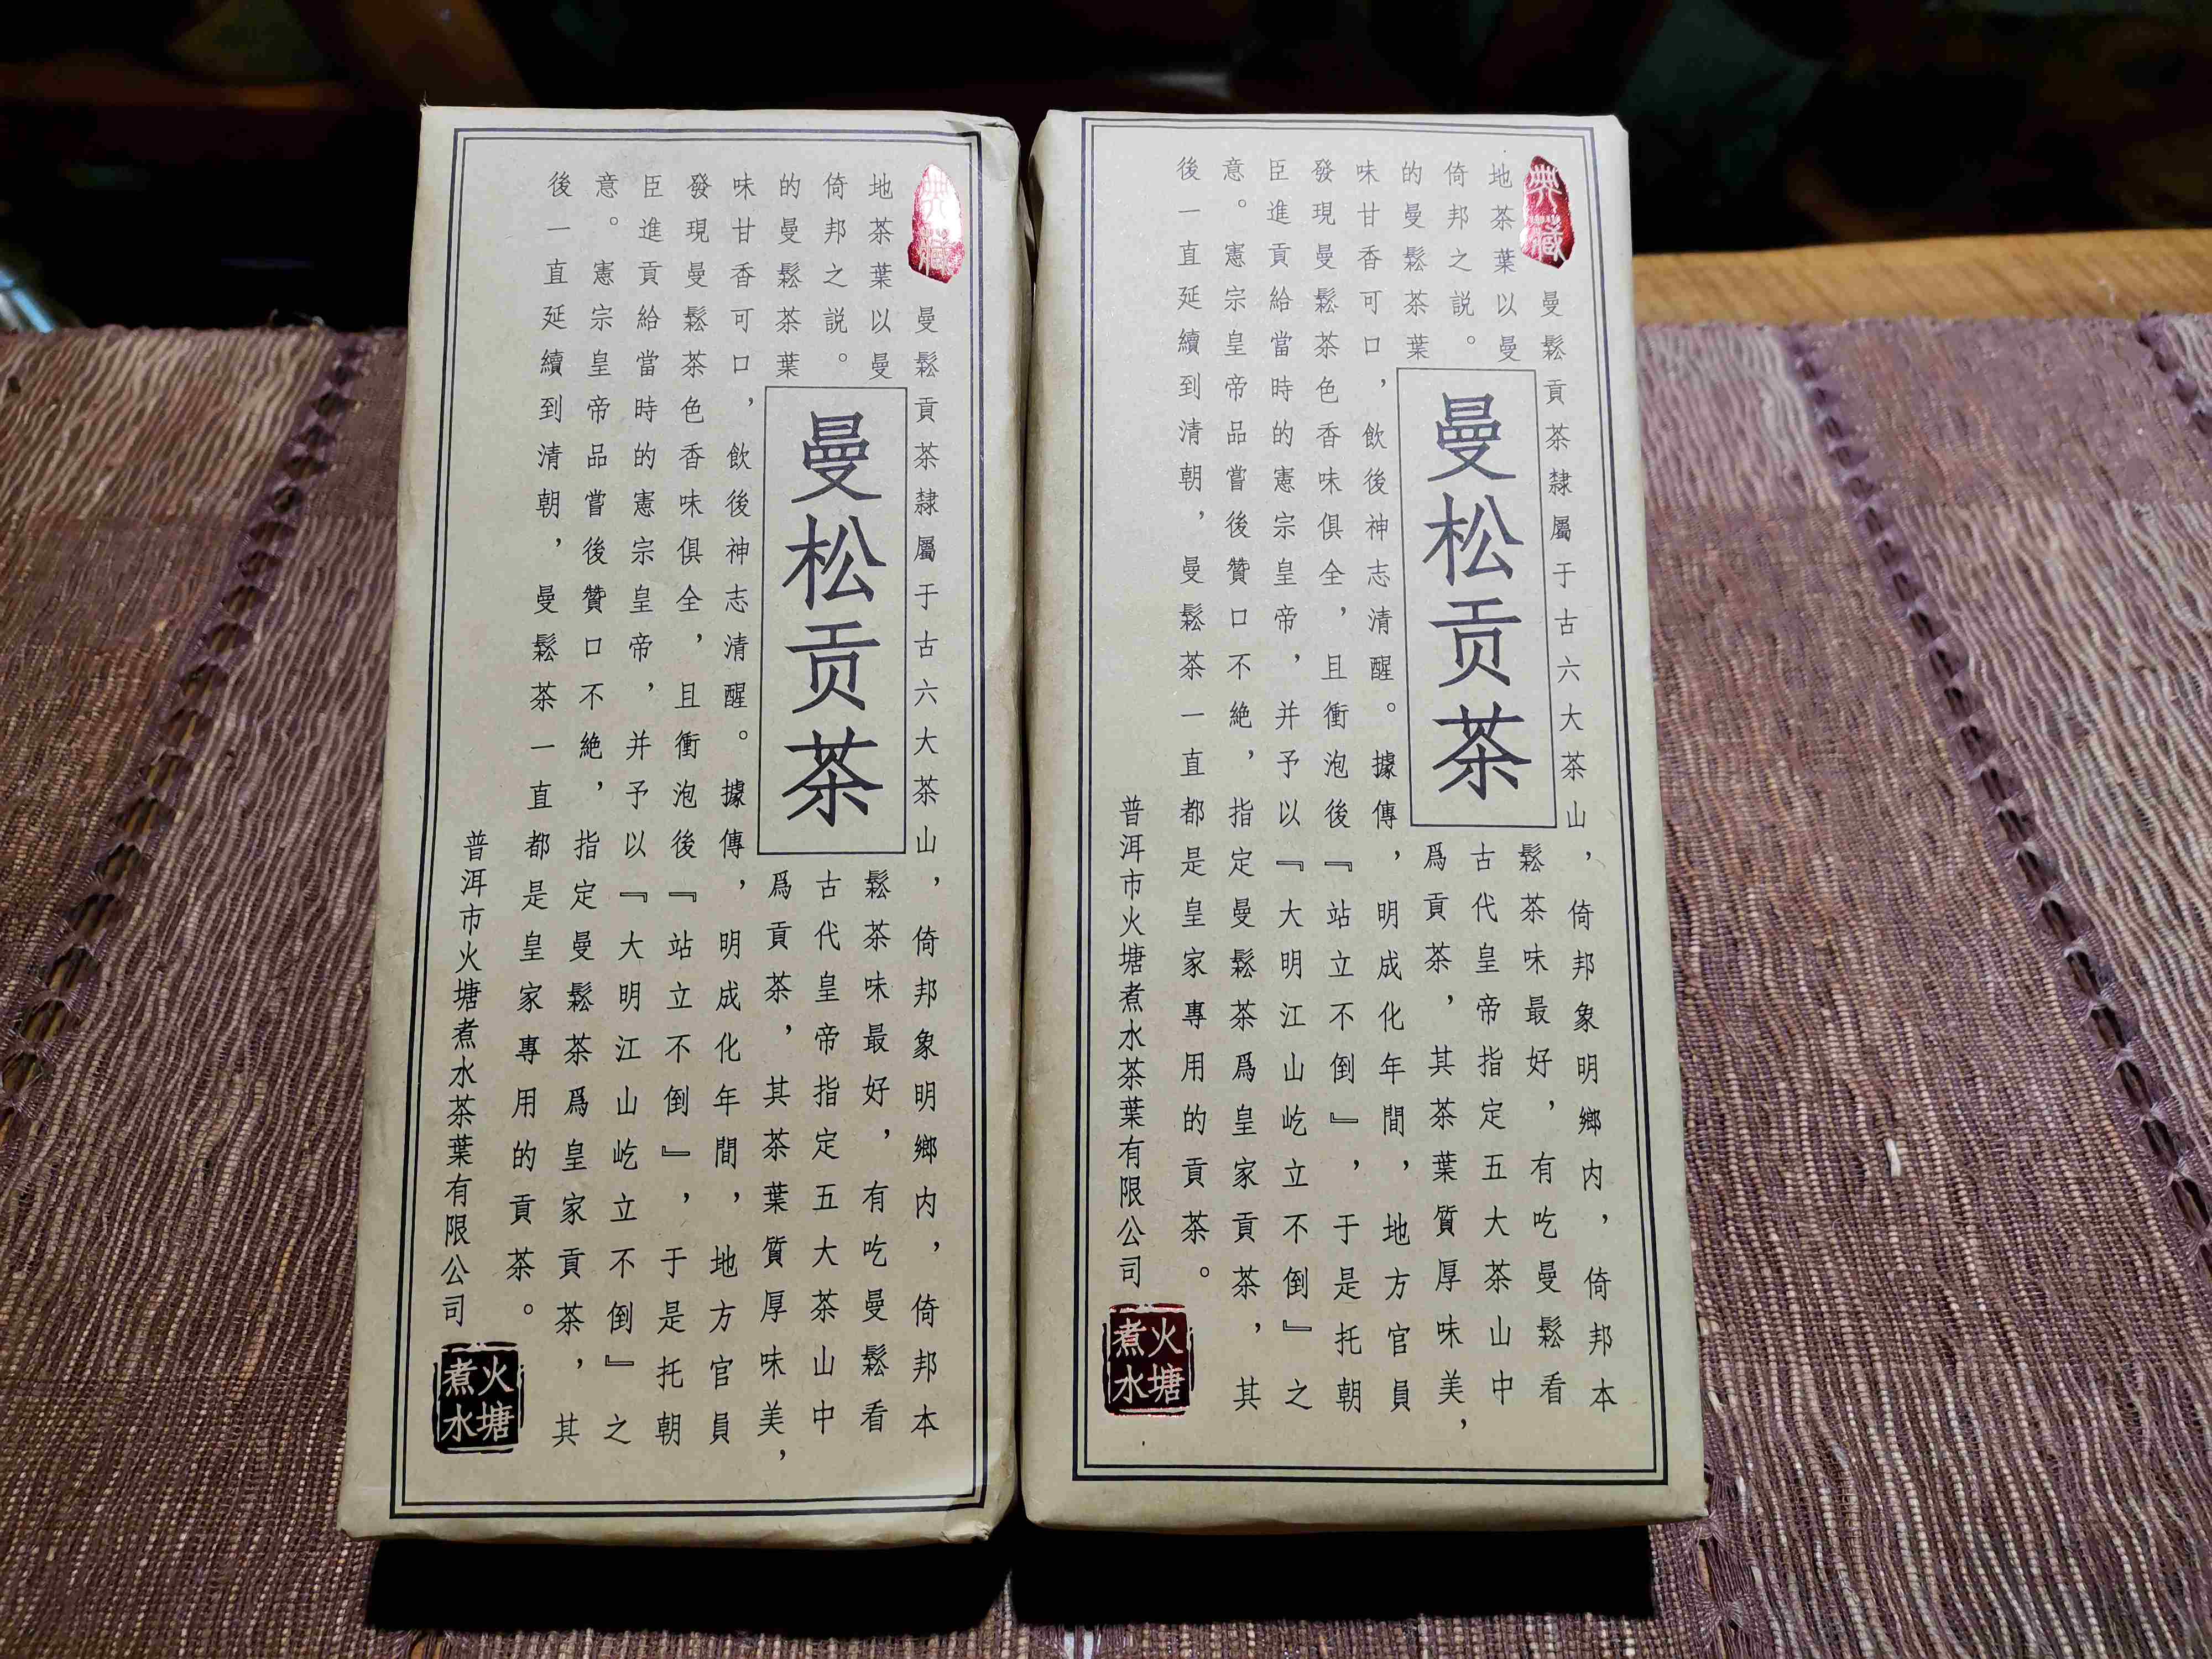 典藏
曼松贡茶
曼鬆貢茶隸屬于古六大茶山，倚邦象明鄉内，倚邦本
地茶葉以曼鬆茶味最好，有吃曼鬆看
倚邦之説。古代皇帝指定五大茶山中
的曼鬆茶葉爲貢茶，其茶葉質厚味美，
味甘香可口，飲後神志清醒。據傳，明成化年間，地方官員
發現曼鬆茶色香味俱全，且衝泡後『站立不倒』，于是托朝
臣進貢給當時的憲宗皇帝，并予以『大明江山屹立不倒』之
意。憲宗皇帝品嘗後贊口不絶，指定曼鬆茶爲皇家貢茶，其
後一直延續到清朝，曼鬆茶一直都是皇家專用的貢茶。
普洱市火塘煮水茶葉有限公司
火塘
煮水
典藏
曼松贡茶
曼鬆貢茶隸屬于古六大茶山，倚邦象明鄉内，倚邦本
地茶葉以曼鬆茶味最好，有吃曼鬆看
倚邦之説。古代皇帝指定五大茶山中
的曼鬆茶葉爲貢茶，其茶葉質厚味美，
味甘香可口，飲後神志清醒。據傳，明成化年間，地方官員
發現曼鬆茶色香味俱全，且衝泡後『站立不倒』，于是托朝
臣進貢給當時的憲宗皇帝，并予以『大明江山屹立不倒』之
意。憲宗皇帝品嘗後贊口不絶，指定曼鬆茶爲皇家貢茶，其
後一直延續到清朝，曼鬆茶一直都是皇家專用的貢茶。
普洱市火塘煮水茶葉有限公司
火塘
煮水